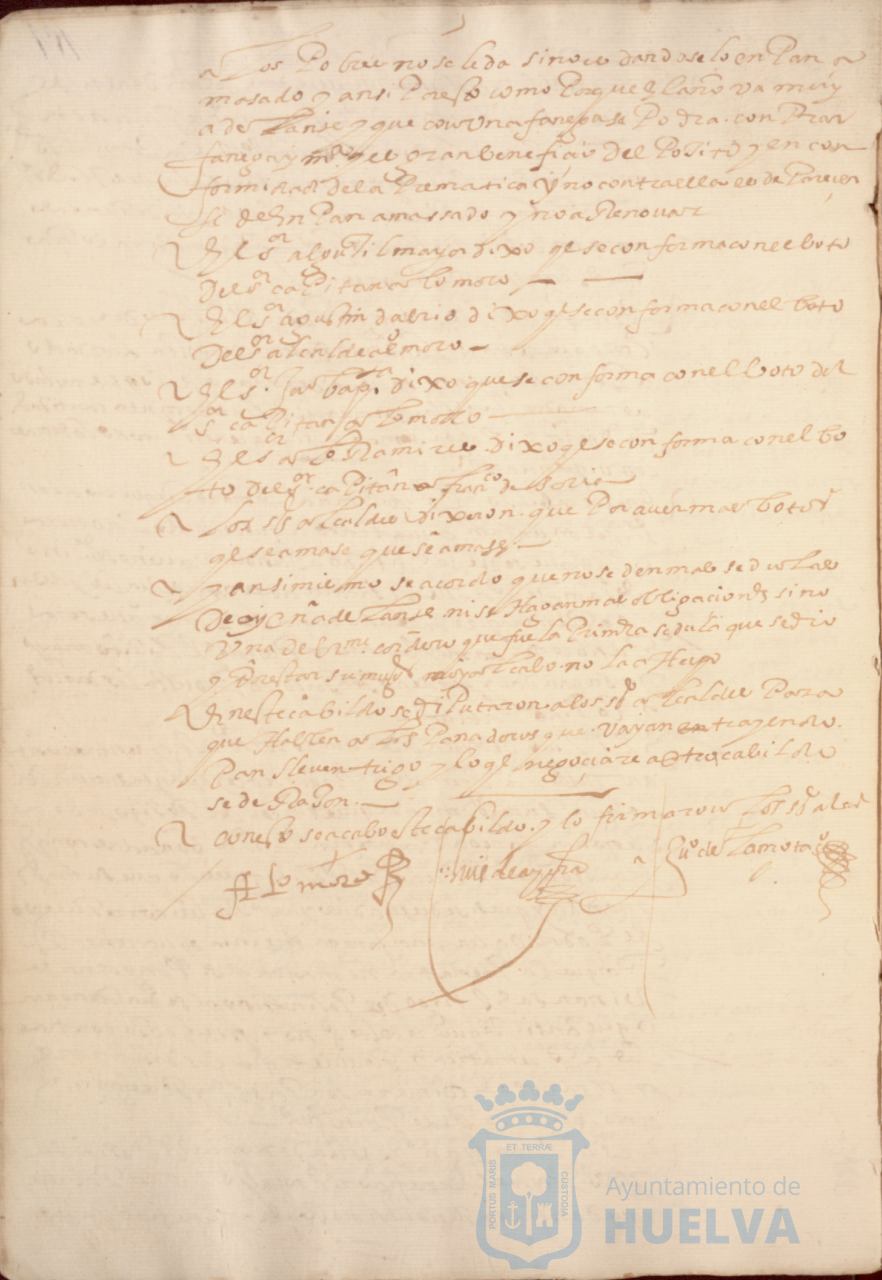 a los Pobre no se le da sino es dandoselo en Pan a
masado y ansi Por esto como Porque el año va muy
adelante y que con una fanega se Podra conPrar
fanega y mª y es gran beneficio del Posito y en con
formidad de la Prematica y no contra ella es de Parecer
se de En Pan amassado y no a Renovar
El sor alguacil mayor dixo qe se conforma con el boto
Del sor caPitan alº moro
El sor agustin dabrio dixo qe se conforma con el boto
Del sor alcalde alº moro
El sor Juº bapta dixo que se conforma con el boto del
sor caPitan alº moro
El sor alº Ramires dixo qe se conforma con el bo
to del sor caPitan franco de
los ss alcaldes dixeron que Por aver mas botos
qe se amase que se amase
y ansimismo se acordo que no se den mas sedulas
De oy en adelante ni se Hagan mas obligaciones sino
Una de cordero que fue la Primera sedula que se dio
y Por estar su muger no la Hizo
En este cabildo se diPutaron a los ss alcaldes Para
que Hablen a los Panaderos que vayan trayendo
Pan lleven trigo y lo qe negociare a otro cabildo
se de Rason
con esto se acabo este cabildo y lo firmaron los ss alcds
Alº moro
Luis de
de la mota
ET TERRÆ
PORTUS MARIS
CUSTODIA
Ayuntamiento de
HUELVA